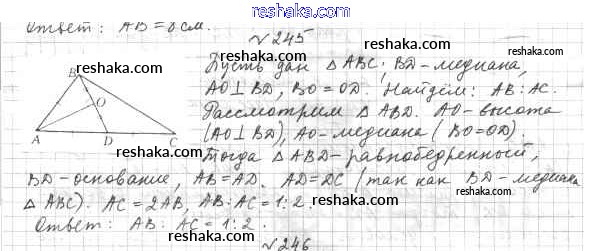 reshaka.com
Ответ: AB = 8 см.
№ 245
reshaka.com
Пусть дан △ ABC; BD - медиана,
AO ⊥ BD, BO = OD. Найдём: AB : AC.
reshaka.com
Рассмотрим △ ABD. AO - высота
(AO ⊥ BD), AO - медиана (BO = OD).
reshaka.com
Тогда △ ABD - равнобедренный,
BD - основание, AB = AD. AD = DC (так как BD - медиана
△ ABC). AC = 2AB, AB : AC = 1 : 2.
reshaka.com
Ответ: AB : AC = 1 : 2.
№ 246
B
O
A
D
C
reshaka.com
reshaka.com
reshaka.com
reshaka.com
reshaka.com